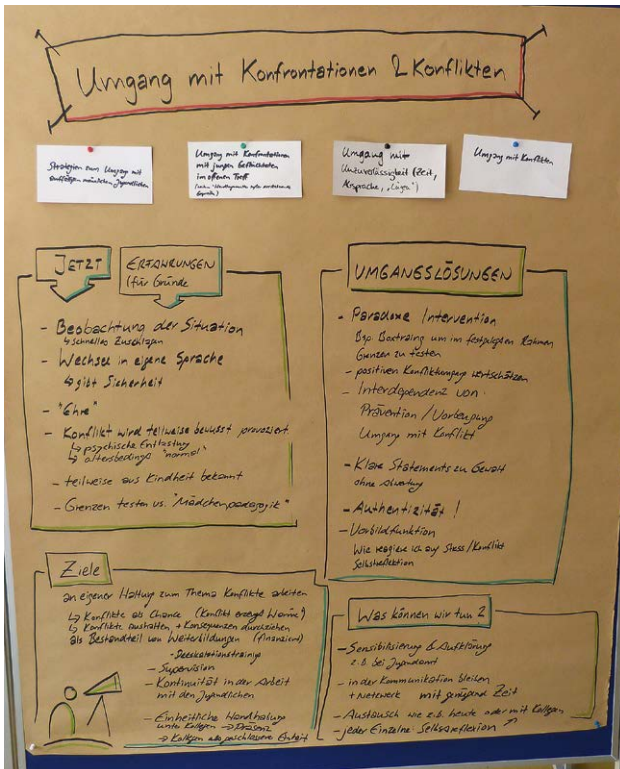 Umgang mit Konfrontationen & Konflikten
Strategien zum Umgang mit
auffälligen männlichen Jugendlichen
Umgang mit Konfrontationen
mit jungen Geflüchteten
im offenen Treff
Umgang mit
Unzuverlässigkeit (Zeit,
Absprache, „Lügen")
Umgang mit Konflikten
JETZT
ERFAHRUNGEN
(für Gründe
- Beobachtung der Situation
↳ schnelles Zuschlagen
- Wechsel in eigene Sprache
↳ gibt Sicherheit
- "Ehre"
- Konflikt wird teilweise bewusst provoziert
↳ psychische Entlastung
↳ altersbedingt "normal"
- teilweise aus Kindheit bekannt
- Grenzen testen vs. "Mädchenpädagogik"
UMGANGSLÖSUNGEN
- Paradoxe Intervention
Bsp. Boxtraining um im festgelegten Rahmen
Grenzen zu testen
- positiven Konfliktumgang wertschätzen
- Interdependenz von
Prävention / Vorbeugung
Umgang mit Konflikt
- Klare Statements zu Gewalt
ohne Abwertung
- Authentizität !
- Vorbildfunktion
Wie reagiere ich auf Stress / Konflikt
Selbstreflektion
Ziele
an eigener Haltung zum Thema Konflikte arbeiten
↳ Konflikte als Chance (Konflikt erzeugt Wärme)
↳ Konflikte aushalten + Konsequenzen durchziehen
als Bestandteil von Weiterbildungen (finanziert)
- Deeskalationstraining
- Supervision
- Kontinuität in der Arbeit
mit den Jugendlichen
- Einheitliche Handhabung
unter Kollegen → Präsenz
→ Kollegen als geschlossene Einheit
Was können wir tun ?
- Sensibilisierung & Aufklärung
z.B. bei Jugendamt
- in der Kommunikation bleiben
+ Netzwerk mit genügend Zeit
- Austausch wie z.B. heute oder mit Kollegen
- jeder Einzelne: Selbstreflexion ↗